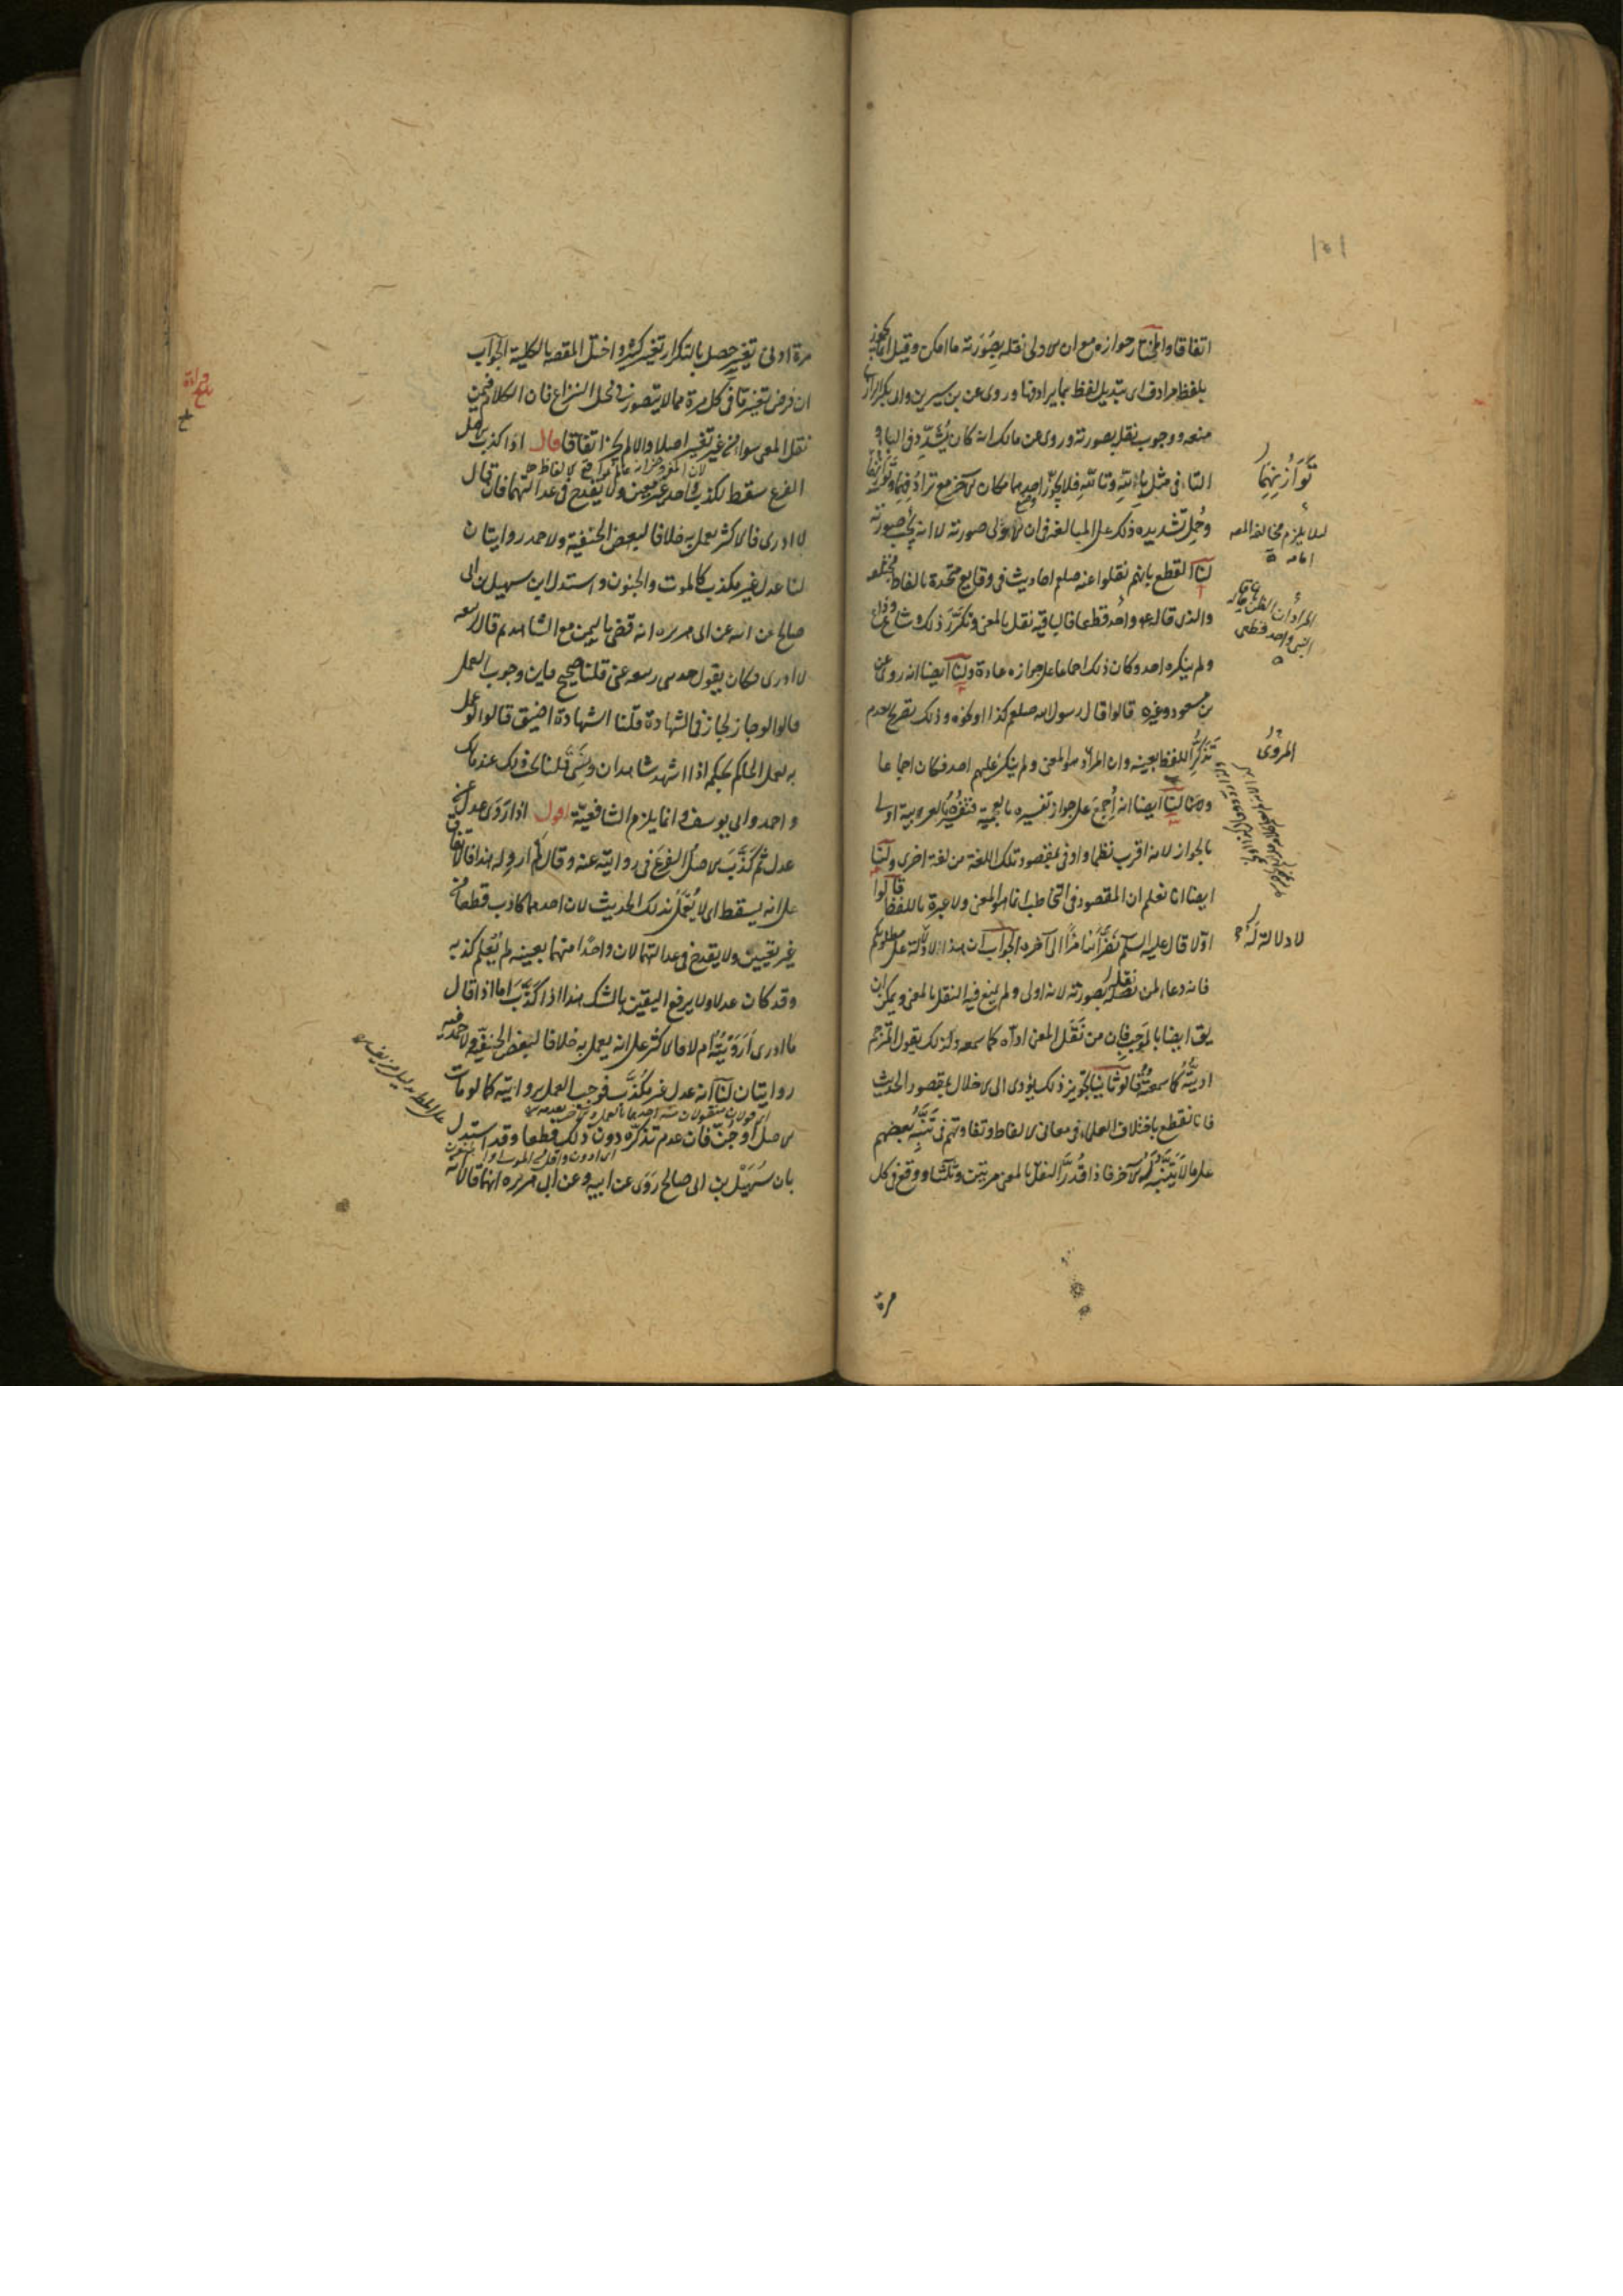 اتفاقا والمختار جوازه مع ان الاولى نقله بصورته ما امكن وقيل انما يجوز
بلفظ مرادف اى بتبديل لفظ بما يرادفها وروى عن بن سيرين وابى بكر الرازى
منعه ووجوب نقله بصورته وروى عن مالك انه كان يُشدّد فى الباء و
التاء فى مثل بالله وتالله فلا يجوز احدهما مكان الآخر مع ترادفهما
وحُمِل تشديده ذلك على المبالغة فى ان الاولى صورته لا انه يجب صورته
لنا القطع بانهم نقلوا عنه صلعم احاديث فى وقايع متحدة بالفاظ مختلفة
والذى قاله واحد قطعا فالباقية نقل بالمعنى وتكرّر ذلك وشاع
ولم ينكره احد وكان ذلك اجماعا على جوازه عادة ولنا ايضا انه روى عن
بن مسعود وغيره قالوا قال رسول الله صلعم كذا او نحوه وذلك تصريح بعدم
تذكّر اللفظ بعينه وان المراد هو المعنى ولم ينكر عليهم احد فكان اجماعا
ولنا ايضا انه أُجمع على جواز تفسيره بالعجمية فتفسيره بالعربية اولى
بالجواز لانه اقرب نظما واوفى بمقصود تلك اللغة من لغة اخرى ولنا
ايضا انا نعلم ان المقصود فى التخاطب انما هو المعنى ولا عبرة باللفظ قالوا
اوّلا قال عليه السلم نضّر الله امرءًا الى آخره الجواب ان هذا لا دلالة على مطلوبكم
فانه دعاء لمن نقله بصورته لانه اولى ولم يمنع فيه النقل بالمعنى ويمكن ان
يقال ايضا بالموجب فان من نقل المعنى ادّاه كما سمعه ولذلك يقول المترجم
ادّيتُه كما سمعتُه قالوا ثانيا تجويز ذلك يؤدى الى الاخلال بمقصود الحديث
فانا نقطع باختلاف العلماء فى معانى الالفاظ وتفاوتهم فى تنبّه بعضهم
على ما لا يتنبّه له الآخر فاذا قُدّر النقل بالمعنى مرتين وثلثا ووقع فى كل
مرة
توازنهما
لئلا يلزم مخالفة المصـ
المروىّ
لا دلالة له
مرة ادنى تغيير حصل بالتكرار تغيير كثير واختل المقصود بالكلية الجواب
ان فرض تغيير ما فى كل مرة مما لا يتصور فى محل النزاع فان الكلام فيمن
نقل المعنى سواء من غير تغيير اصلا والا لم يجز اتفاقا قال اذا كذب الاصل
الفرع سقط لكذب واحد غير معين ولا يقدح فى عدالتهما فان قال
لا ادرى فالاكثر يعمل به خلافا لبعض الحنفية ولاحمد روايتان
لنا عدل غير مكذب كالموت والجنون واستدل ابن سهيل بن ابى
صالح عن ابيه عن ابى هريرة انه قضى باليمين مع الشاهد ثم قال لربيعة
لا ادرى وكان يقول حدثنى ربيعة عنى قلنا صحيح فاين وجوب العمل
قالوا لو جاز لجاز فى الشهادة قلنا الشهادة اضيق قالوا لو عمل
به لعمل الحاكم بحكمه اذا شهد شاهدان ونسى قلنا يجب ذلك عند مالك
واحمد وابى يوسف وانما يلزم الشافعية اقول اذا روى عدل عن
عدل ثم كذّب الاصل الفرع فى روايته عنه وقال لم اروِ له هذا فالاتفاق
على انه يسقط اى لا يُعمل بذلك الحديث لان احدهما كاذب قطعا من
غير تعيين ولا يقدح فى عدالتهما لان واحدًا منهما بعينه لم يُعلم كذبه
وقد كان عدلا ولا يرفع اليقين بالشك هذا اذا كذّب اما اذا قال
ما ادرى أرَوَيتُه ام لا فالاكثر على انه يعمل به خلافا لبعض الحنفية ولاحمد فيه
روايتان لنا انه عدل غير مكذَّب فوجب العمل بروايته كما لو مات
الاصل او جُنّ فان عدم تذكّره دون ذلك قطعا وقد استدل
بان سُهَيْل بن ابى صالح روى عن ابيه وعن ابى هريرة انها قالا انه